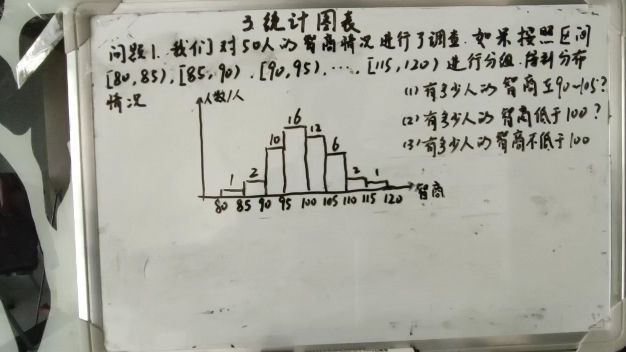 3.统计图表
问题1.我们对50人的智商情况进行了调查.如果按照区间
[80,85),[85,90),[90,95),…,[115,120)进行分组.得到分布
情况
(1)有多少人的智商在90~105?
(2)有多少人的智商低于100?
(3)有多少人的智商不低于100
人数/人
1
2
10
16
12
6
2
1
80 85 90 95 100 105 110 115 120
智商